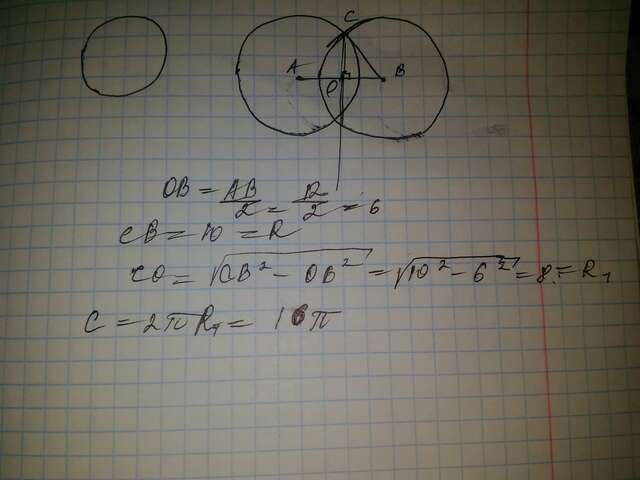 C
A O B
OB = AB/2 = 12/2 = 6
CB = 10 = R
CO = √(CB² - OB²) = √(10² - 6²) = 8 = R₁
C = 2πR₁ = 16π